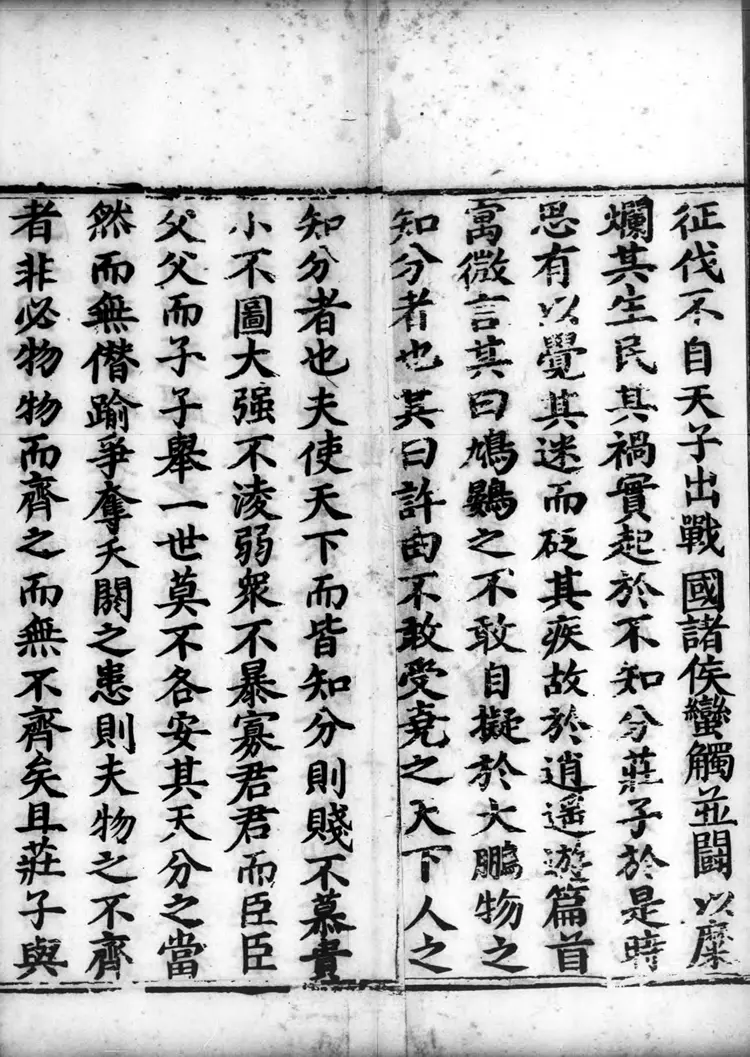 征伐不自天子出戰國諸侯蠻觸並鬪以糜
爛其生民其禍實起於不知分莊子於是時
思有以覺其迷而砭其疾故於逍遥遊篇首
寓微言其曰鳩鷃之不敢自擬於大鵬物之
知分者也其曰許由不敢受堯之天下人之
知分者也夫使天下而皆知分則賤不慕貴
小不圖大强不淩弱衆不暴寡君君而臣臣
父父而子子舉一世莫不各安其天分之當
然而無僭踰爭奪夭閼之患則夫物之不齊
者非必物物而齊之而無不齊矣且莊子與